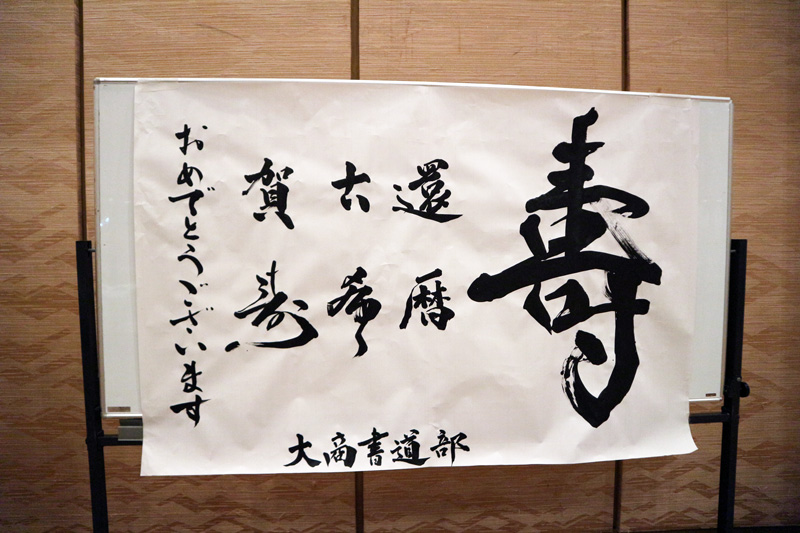 壽
還暦
古希
賀寿
おめでとうございます
大商書道部